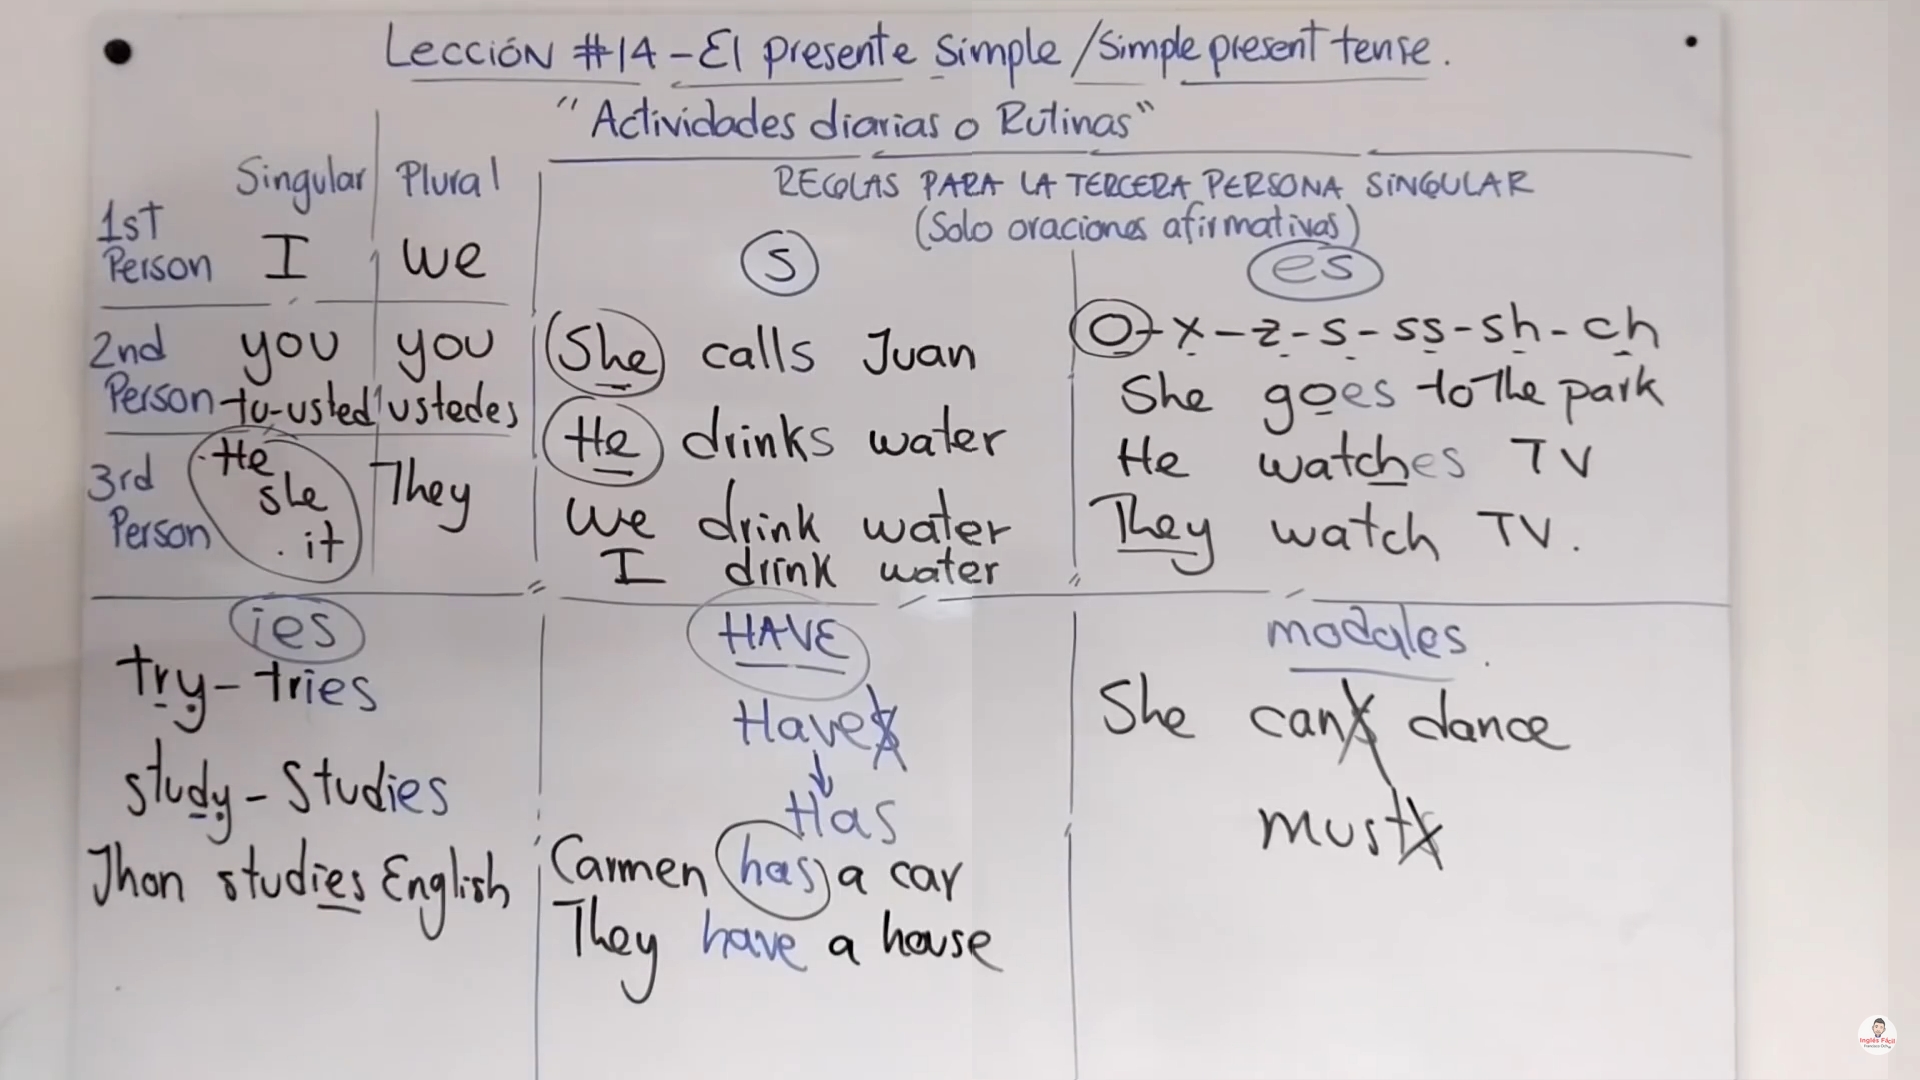 Lección #14 - El presente simple / Simple present tense.
"Actividades diarias o Rutinas"
Singular Plural
1st Person I we
2nd Person you you
tu-usted ustedes
3rd Person He she it They
REGLAS PARA LA TERCERA PERSONA SINGULAR
(Solo oraciones afirmativas)
s
She calls Juan
He drinks water
We drink water
I drink water
es
O - x - z - s - ss - sh - ch
She goes to The park
He watches TV
They watch TV.
ies
try - tries
study - Studies
Jhon studies English
HAVE
Haves
Has
Carmen has a car
They have a house
modales.
She cans dance
musts
Inglés Fácil